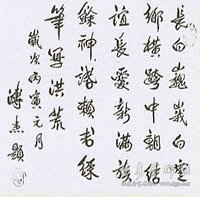 長白巍峩白雲
鄉橫跨中朝結
誼長愛新滿族
餘神話賴椽
筆寫洪荒
歲次丙寅元月
溥杰題